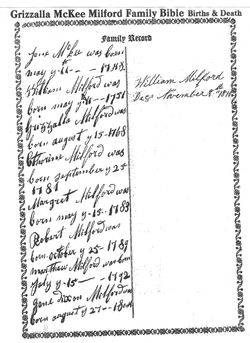 Grizzalla McKee Milford Family Bible Births & Death
Family Record
Jane McKee was born
may y 11 1748
William Milford was
born may y 11 -- 1751
Grizzalla Milford was
born august y 15 - 1768
Catharine Milford was
born September y 25
1781
Margret Milford was
born may y - 15 - 1783
Robert Milford was
born october y 25 - 1789
matthew Milford was born
July y 15 -- 1792
Jane Dixon Milford was
born august y 27 --
William Milford
November 8th